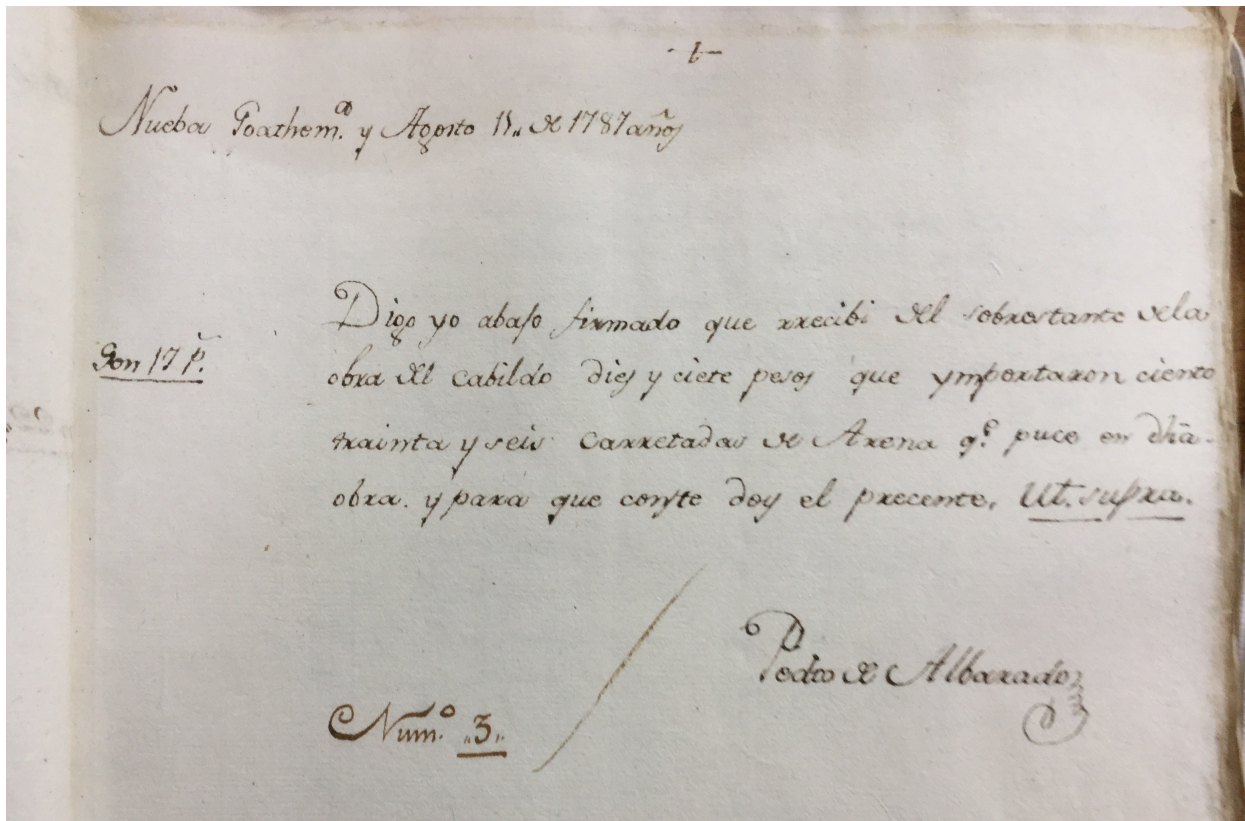 Nueba Goathem.ᵃ y Agosto 11,, de 1787 años
Son 17 pˢ.
Digo yo abajo firmado que rrecibi del sobrestante dela
obra del Cabildo dies y ciete pesos que ymportaron ciento
trainta y seis Carretadas de Arena q.ᵉ puce en dha
obra. y para que conste doy el precente. Ut. supra.
Pedro de Albarado
Num.º ,,3,,